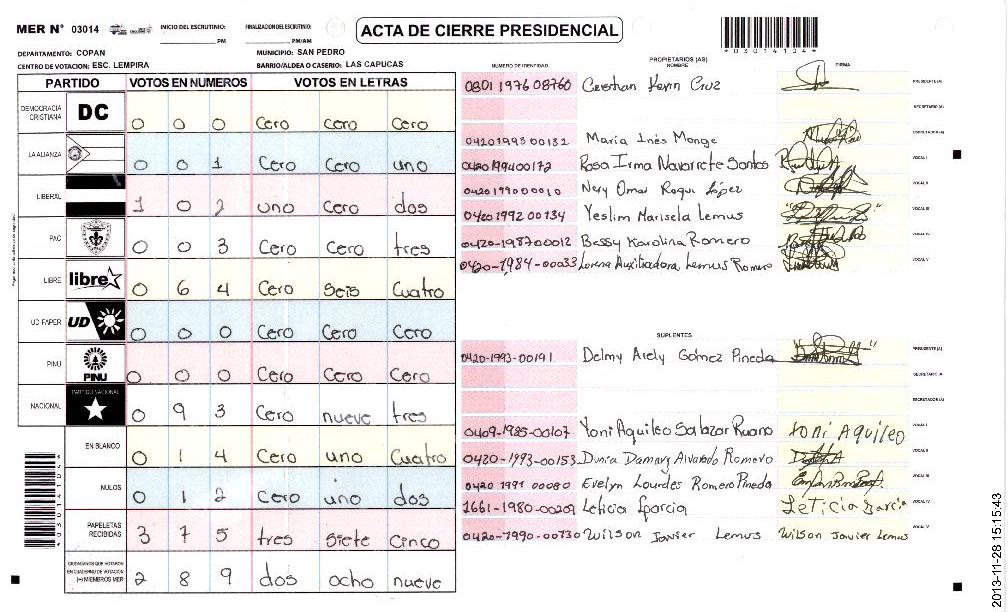 MER N° 03014 INICIO DEL ESCRUTINIO: PM FINALIZACION DEL ESCRUTINIO: PM/AM ACTA DE CIERRE PRESIDENCIAL
DEPARTAMENTO: COPAN MUNICIPIO: SAN PEDRO
CENTRO DE VOTACION: ESC. LEMPIRA BARRIO/ALDEA O CASERIO: LAS CAPUCAS
PARTIDO VOTOS EN NUMEROS VOTOS EN LETRAS
DEMOCRACIA CRISTIANA DC 0 0 0 Cero cero Cero
LA ALIANZA 0 0 1 Cero Cero uno
LIBERAL 1 0 2 uno Cero dos
PAC 0 0 3 Cero Cero tres
LIBRE libre 0 6 4 Cero Seis Cuatro
UD FAPER UD 0 0 0 Cero Cero Cero
PINU PINU 0 0 0 Cero Cero Cero
NACIONAL PARTIDO NACIONAL 0 9 3 Cero nueve tres
EN BLANCO 0 1 4 Cero uno Cuatro
NULOS 0 1 2 Cero uno dos
PAPELETAS RECIBIDAS 3 7 5 tres siete Cinco
CIUDADANOS QUE VOTARON EN CUADERNO DE VOTACION (+) MIEMBROS MER 2 8 9 dos ocho nueve
*030141044*
*030141044*
PROPIETARIOS (AS)
NUMERO DE IDENTIDAD NOMBRE FIRMA
0801 1976 08760 Cristhan Kevin Cruz PRESIDENTE (A)
SECRETARIO (A)
0420 1993 00132 Maria Inés Monge ESCRUTADOR (A)
0420 1994 00172 Rosa Irma Navarrete Santos VOCAL I
0420 1990 00010 Nery Omar Roque López VOCAL II
0420 1992 00134 Yeslim Marisela Lemus VOCAL III
0420-1987 00012 Bessy Karolina Romero VOCAL IV
0420-1984-00033 Lorena Auxiliadora Lemus Romero VOCAL V
SUPLENTES
0420-1993-00191 Delmy Arely Gómez Pineda PRESIDENTE (A)
SECRETARIO (A)
ESCRUTADOR (A)
0409-1985-00107 Yoni Aquileo Salazar Ruano Yoni Aquileo VOCAL I
0420-1993-00153 Dunia Damary Alvarado Romero VOCAL II
0420 1991 00080 Evelyn Lourdes Romero Pineda VOCAL III
1661-1980-00209 Leticia Garcia Leticia Garcia VOCAL IV
0420-1990-00730 Wilson Javier Lemus Wilson Javier Lemus VOCAL V
2013-11-28 15:15:43